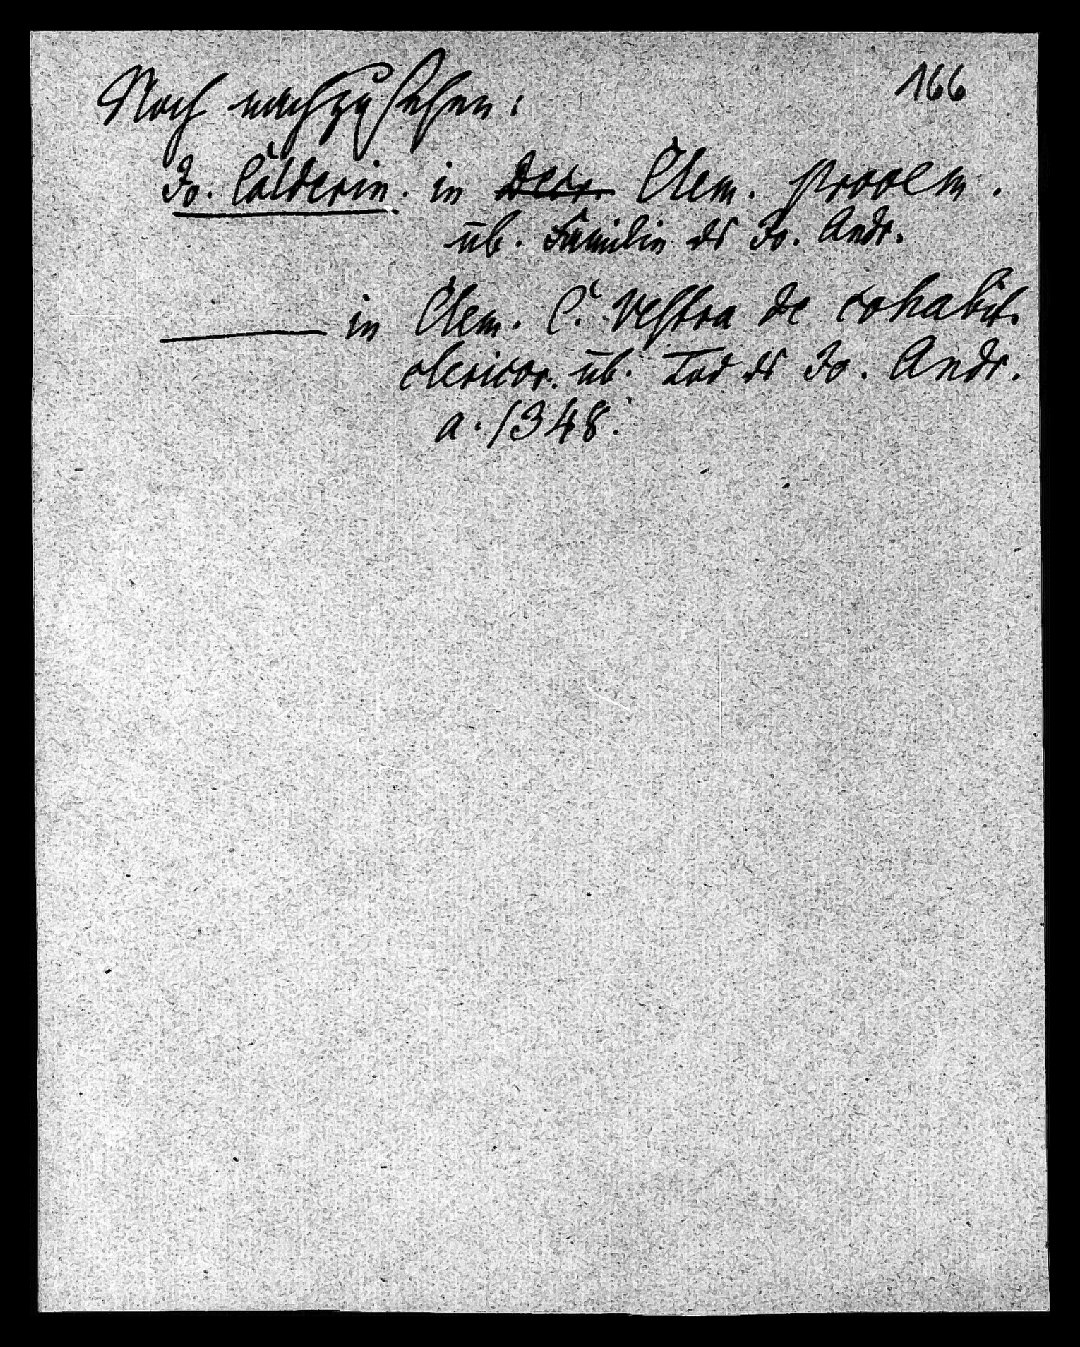 166
Noch nachzusehen:
Jo. Calderin. in Decr. Clem. prooem.
üb. Familie des Jo. Andr.
in Clem. C. Vestra de cohabit.
clericor. üb. Tod des Jo. Andr.
a. 1348.